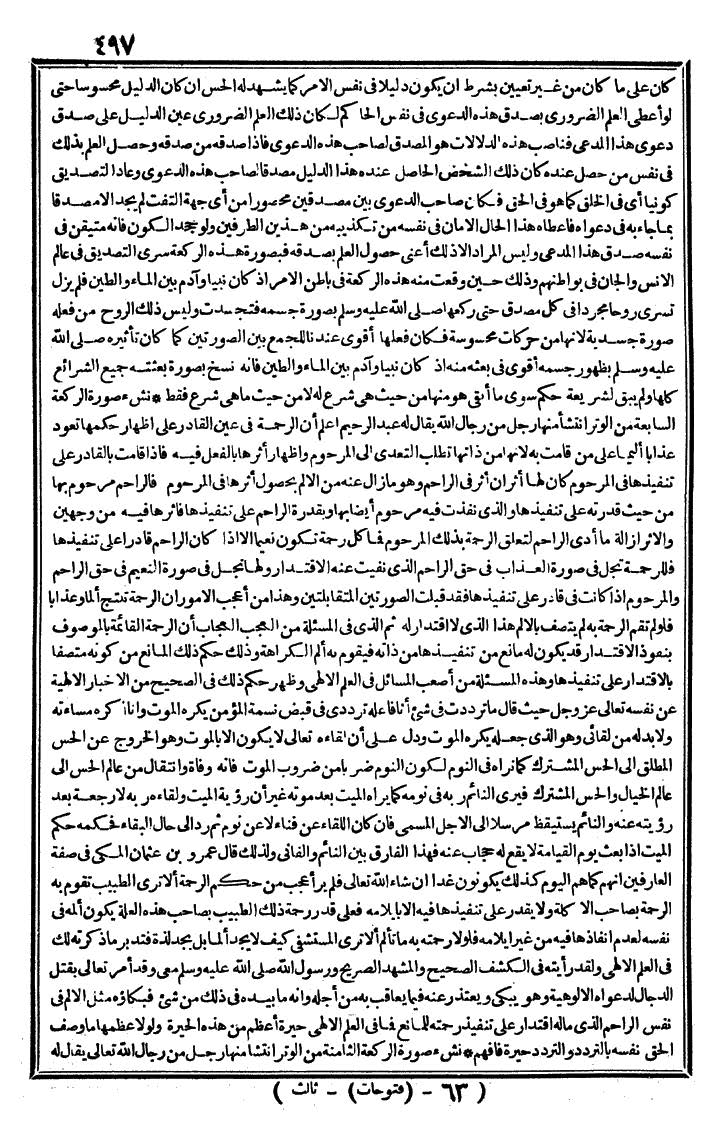 ٤٩٧
كان على ما كان من غير تعيين بشرط ان يكون دليلا فى نفس الامر كما يشهد له الحس ان كان الدليل محسوسا حتى
لو أعطى العلم الضرورى بصدق هذه الدعوى فى نفس الحاكم لكان ذلك العلم الضرورى عين الدليل على صدق
دعوى هذا المدعى فناصب هذه الدلالات هو المصدق لصاحب هذه الدعوى فاذا صدقه من صدقه وحصل العلم بذلك
فى نفس من حصل عنده كان ذلك الشخص الحاصل عنده هذا الدليل مصدقا لصاحب هذه الدعوى وعاد التصديق
كونيا أى فى الخلق كما هو فى الحق فكان صاحب الدعوى بين مصدقين محصورا من أى جهة التفت لم يجد الامصدقا
بما جاء به فى دعواه فاعطاه هذا الحال الامان فى نفسه من تكذيبه من هذين الطرفين ولو جحد الكون فانه متيقن فى
نفسه صدق هذا المدعى وليس المراد الا ذلك أعنى حصول العلم بصدقه فبصورة هذه الركعة سرى التصديق فى عالم
الانس والجان فى بواطنهم وذلك حين وقعت منه هذه الركعة فى باطن الامر اذ كان نبيا وآدم بين الماء والطين فلم يزل
تسرى روحا مجردا فى كل مصدق حتى ركعها صلى الله عليه وسلم بصورة جسمه فتجسدت وليس ذلك الروح من فعله
صورة جسدية لانها من حركات محسوسة فكان فعلها أقوى عندنا للجمع بين الصورتين كما كان تأثيره صلى الله
عليه وسلم بظهور جسمه أقوى فى بعثه منه اذ كان نبيا وآدم بين الماء والطين فانه نسخ بصورة بعثته جميع الشرائع
كلها ولم يبق لشريعة حكم سوى ما أبقى هو منها من حيث هى شرع له لا من حيث ماهى شرع فقط * نش ء صورة الركعة
السابعة من الوتر انتشأ منها رجل من رجال الله يقال له عبد الرحيم اعلم أن الرحمة فى عين القادر على اظهار حكمها تعود
عذابا أليما على من قامت به لانها من ذاتها تطلب التعدى الى المرحوم واظهار أثرها بالفعل فيه فاذا قامت بالقادر على
تنفيذها فى المرحوم كان لها أثران أثر فى الراحم وهو مازال عنه من الالم بحصول أثرها فى المرحوم فالراحم مرحوم بها
من حيث قدرته على تنفيذها والذى نفذت فيه مرحوم أيضا بها وبقدرة الراحم على تنفيذها فاثرها فيه من وجهين
والاثر ازالة ما أدى الراحم لتعلق الرحمة بذلك المرحوم فما كل رحمة تكون نعيما الا اذا كان الراحم قادرا على تنفيذها
فللرحمة تجل فى صورة العذاب فى حق الراحم الذى نفيت عنه الاقتدار ولها تجل فى صورة النعيم فى حق الراحم
والمرحوم اذا كانت فى قادر على تنفيذها فقد قبلت الصورتين المتقابلتين وهذا من أعجب الامور ان الرحمة تنتج ألما وعذابا
فلو لم تقم الرحمة به لم يتصف بالالم هذا الذى لا اقتدار له ثم الذى فى المسئلة من العجب العجاب أن الرحمة القائمة بالموصوف
بنفوذ الاقتدار قد يكون له مانع من تنفيذها من ذاته فيقوم به ألم الكراهة وذلك حكم ذلك المانع من كونه متصفا
بالاقتدار على تنفيذها وهذه المسئلة من أصعب المسائل فى العلم الالهى وظهر حكم ذلك فى الصحيح من الاخبار الالهية
عن نفسه تعالى عز وجل حيث قال ما ترددت فى شئ أنا فاعله ترددى فى قبض نسمة المؤمن يكره الموت وانا أكره مساءته
ولا بد له من لقائى وهو الذى جعله يكره الموت ودل على أن لقاءه تعالى لا يكون الا بالموت وهو الخروج عن الحس
المطلق الى الحس المشترك كما نراه فى النوم لكون النوم ضربا من ضروب الموت فانه وفاة وانتقال من عالم الحس الى
عالم الخيال والحس المشترك فيرى النائم ربه فى نومه كما يراه الميت بعد موته غير أن رؤية الميت ولقاءه ربه لا رجعة بعد
رؤيته عنه والنائم يستيقظ مرسلا الى الاجل المسمى فان كان اللقاء عن فناء لا عن نوم ثم رد الى حال البقاء فحكمه حكم
الميت اذا بعث يوم القيامة لا يقع له حجاب عنه فهذا الفارق بين النائم والفانى ولذلك قال عمرو بن عثمان المكى فى صفة
العارفين انهم كما هم اليوم كذلك يكونون غدا ان شاء الله تعالى فلم ير أعجب من حكم الرحمة ألا ترى الطبيب تقوم به
الرحمة بصاحب الاكلة ولا يقدر على تنفيذها فيه الا بايلامه فعلى قدر رحمة ذلك الطبيب بصاحب هذه العلة يكون ألمه فى
نفسه لعدم انفاذها فيه من غير ايلامه فلولا رحمته به ما تألم ألا ترى المستشفى كيف لا يجد ألما بل يجد لذة فتدبر ما ذكرته لك
فى العلم الالهى ولقد رأيته فى الكشف الصحيح والمشهد الصريح ورسول الله صلى الله عليه وسلم معى وقد أمر تعالى بقتل
الدجال لدعواه الالوهية وهو يبكى ويعتذر عنه فيما يعاقب به من أجله وانه ما بيده فى ذلك من شئ فبكاؤه مثل الالم فى
نفس الراحم الذى ماله اقتدار على تنفيذ رحمته للمانع فما فى العلم الالهى حيرة أعظم من هذه الحيرة ولولا عظمها ما وصف
الحق نفسه بالتردد والتردد حيرة فافهم * نش ء صورة الركعة الثامنة من الوتر انتشأ منها رجل من رجال الله تعالى يقال له
( ٦٣ - (فتوحات) - ثالث )